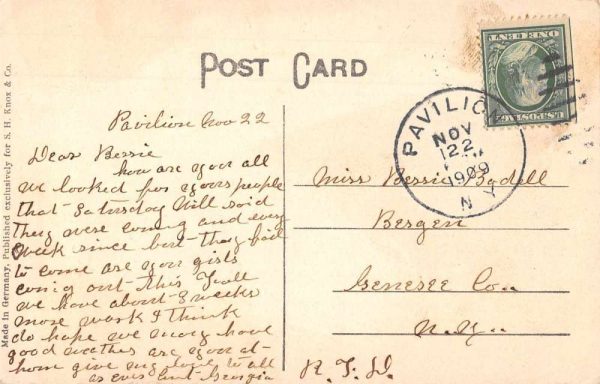 Made in Germany. Published exclusively for S. H. Knox & Co.
POST CARD
U.S. POSTAGE
ONE CENT
PAVILION
NOV
22
1909
N Y
Pavilion Nov 22
Dear Bessie
how are you all
we looked for yours people
that Saturday Will said
they were coming and every
week since but they fail
to come are you girls
comig out this Fall
we have about 3 weeks
more work I think
do hope we may have
good weather are your at
home give my love to all
as ever Aunt Georgia
Miss Bessie Bodell
Bergen
Genesee Co..
N.Y.
R. F. D.